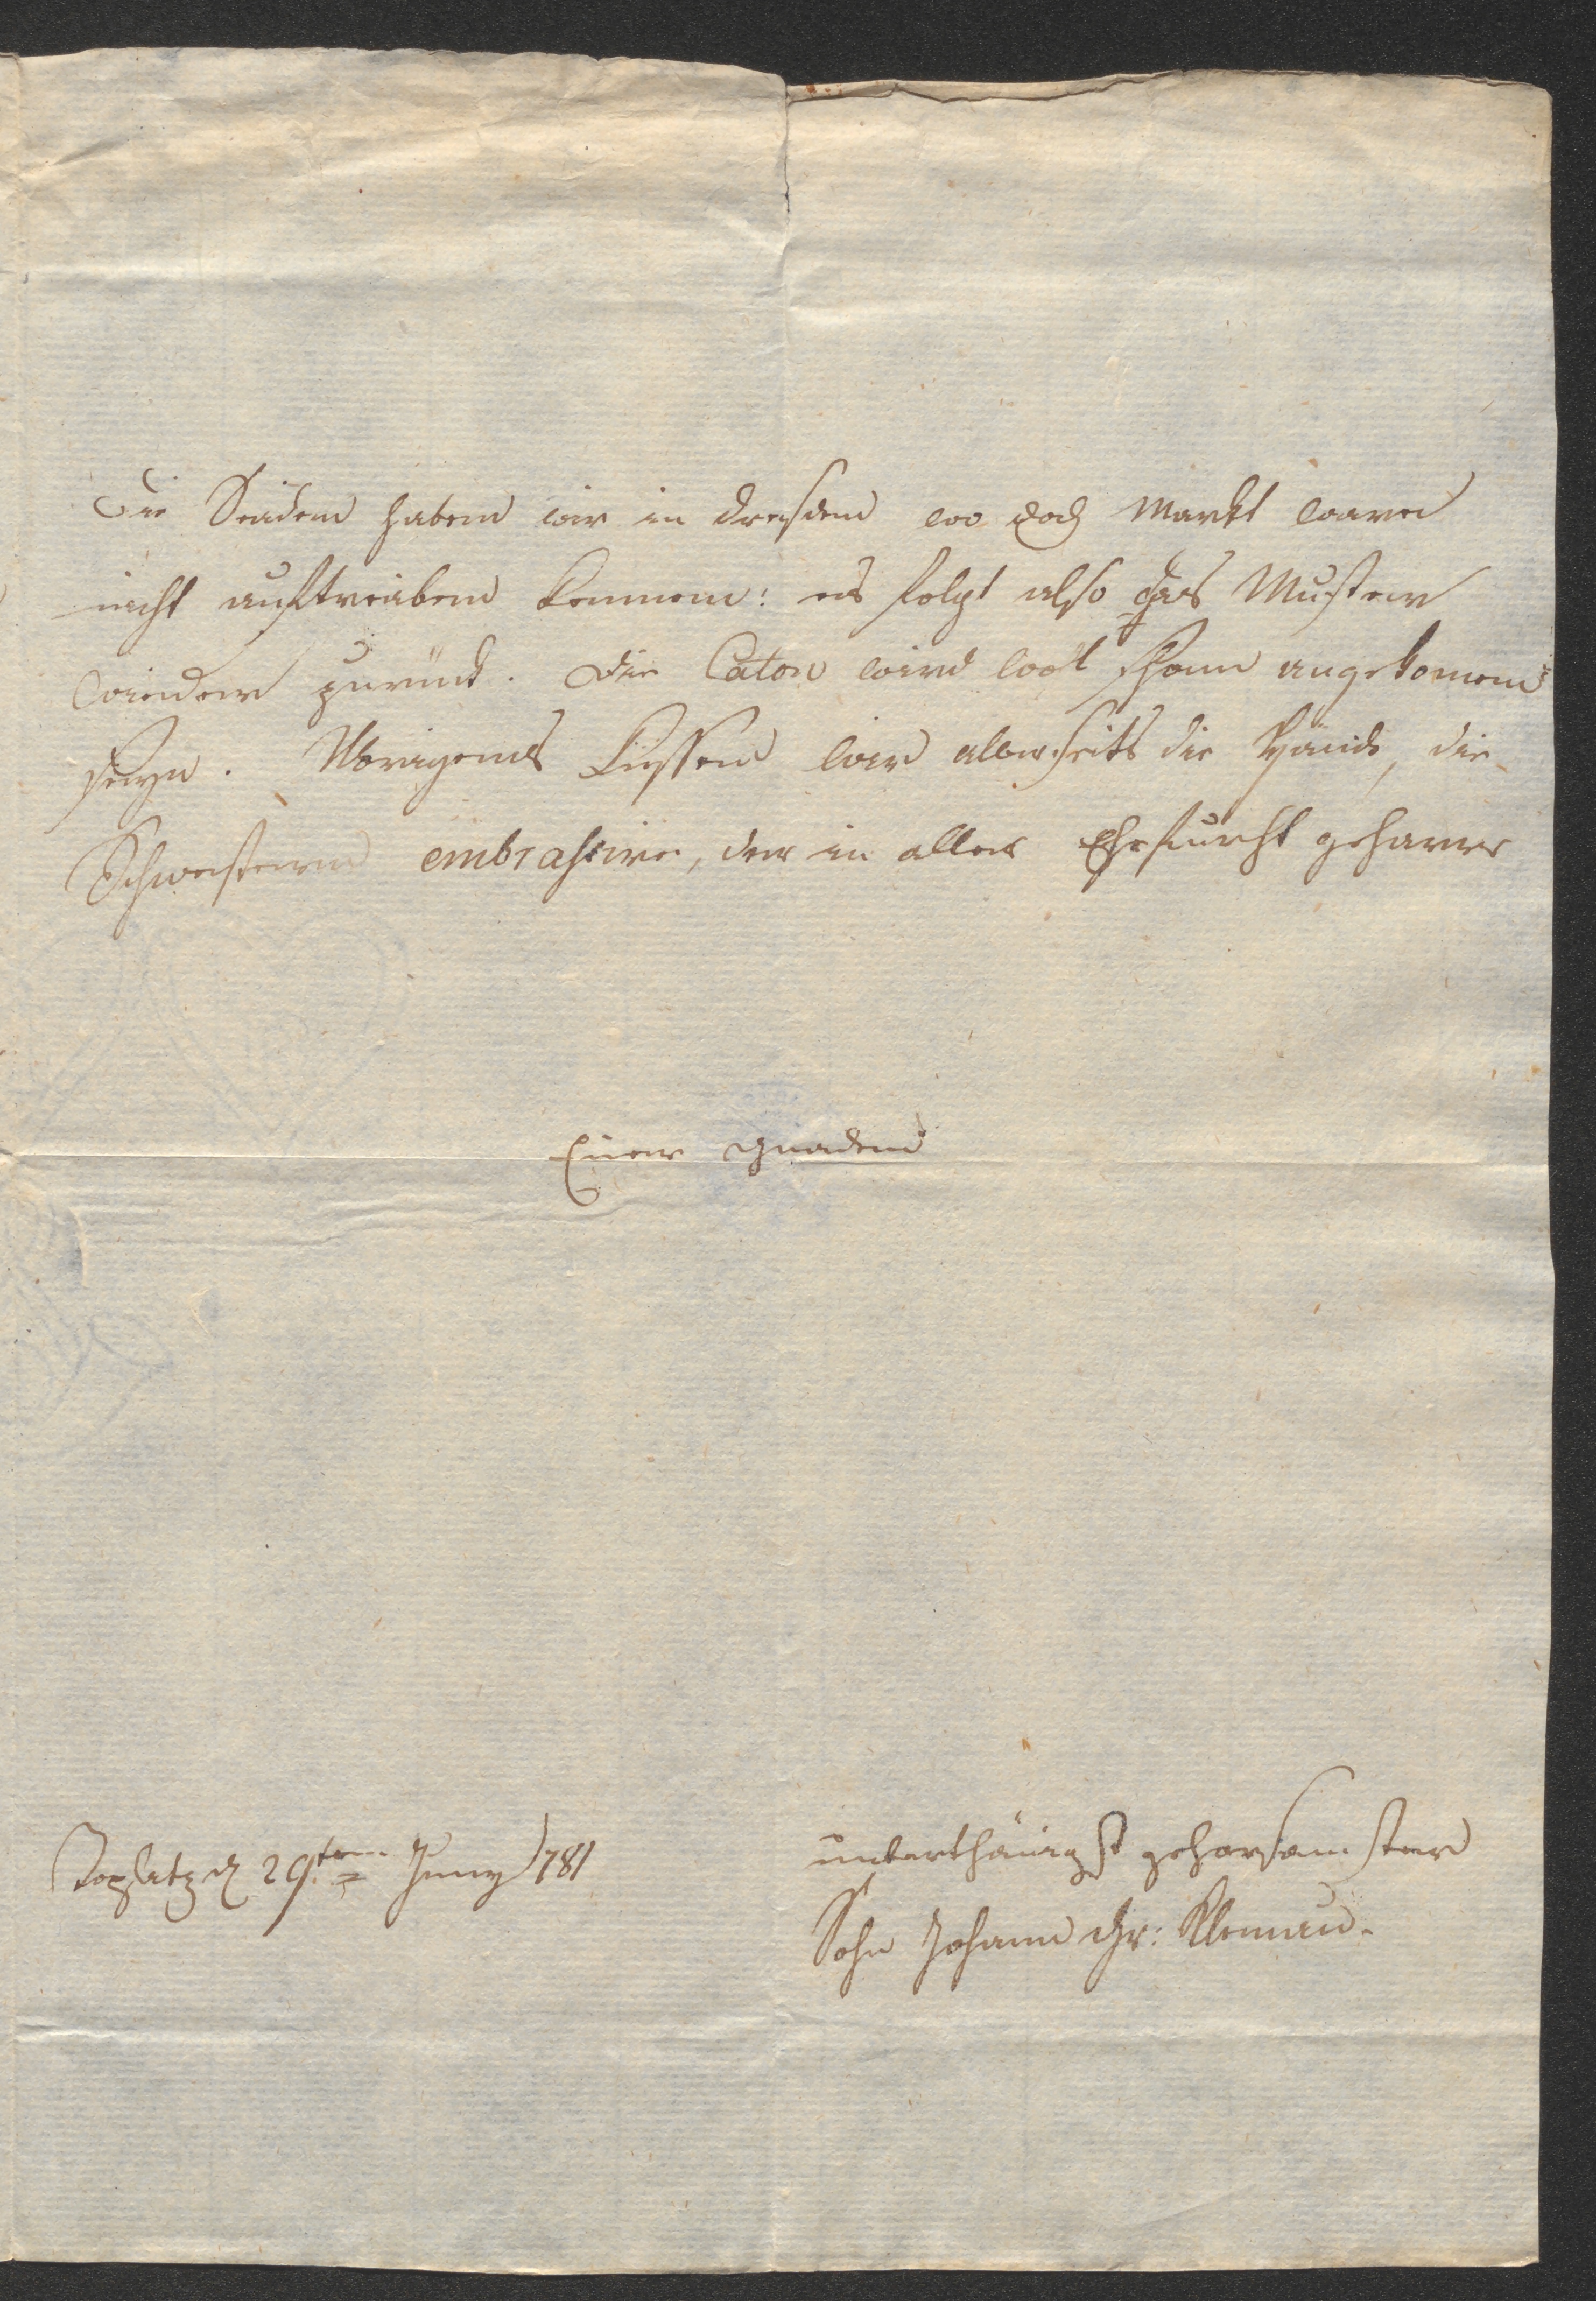 Die Seiden haben wir in Dresden wo doch Markt ware
nicht auftreiben kennen: es folgt also das Muster
wieder zurück. Die Caton wird wol schon angekomen
seyn. Ubrigens kussen wir allerseits die Hände, die
Schwestern embrassire, der in aller Ehrfurcht geharre
Euer Gnaden
Toplitz d 29ten Juny 781
unterthänigst gehorsamster
Sohn Johann Gr: Klenau.